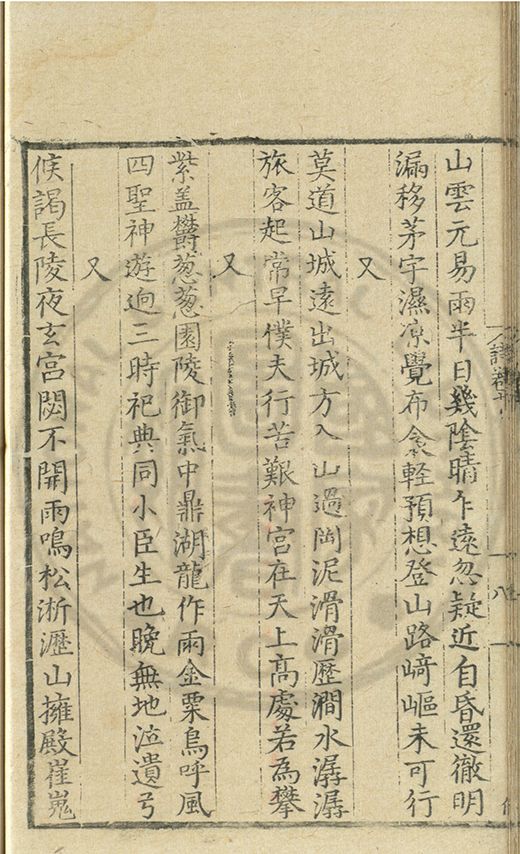 山雲元易雨半日幾陰晴乍遠忽疑近自昏還徹明
漏移茅宇濕凉覺布衾軽預想登山路﨑嶇未可行
又
莫道山城遠出城方入山過岡泥滑滑歴澗水潺潺
旅客起常早僕夫行苦艱神宮在天上高處若為攀
又
紫盖欝葱葱園陵御氣中鼎湖龍作雨金栗鳥呼風
四聖神遊逈三時祀典同小臣生也晚無地泣遺弓
又
候謁長陵夜玄宮閟不開雨鳴松淅瀝山擁殿崔嵬
八